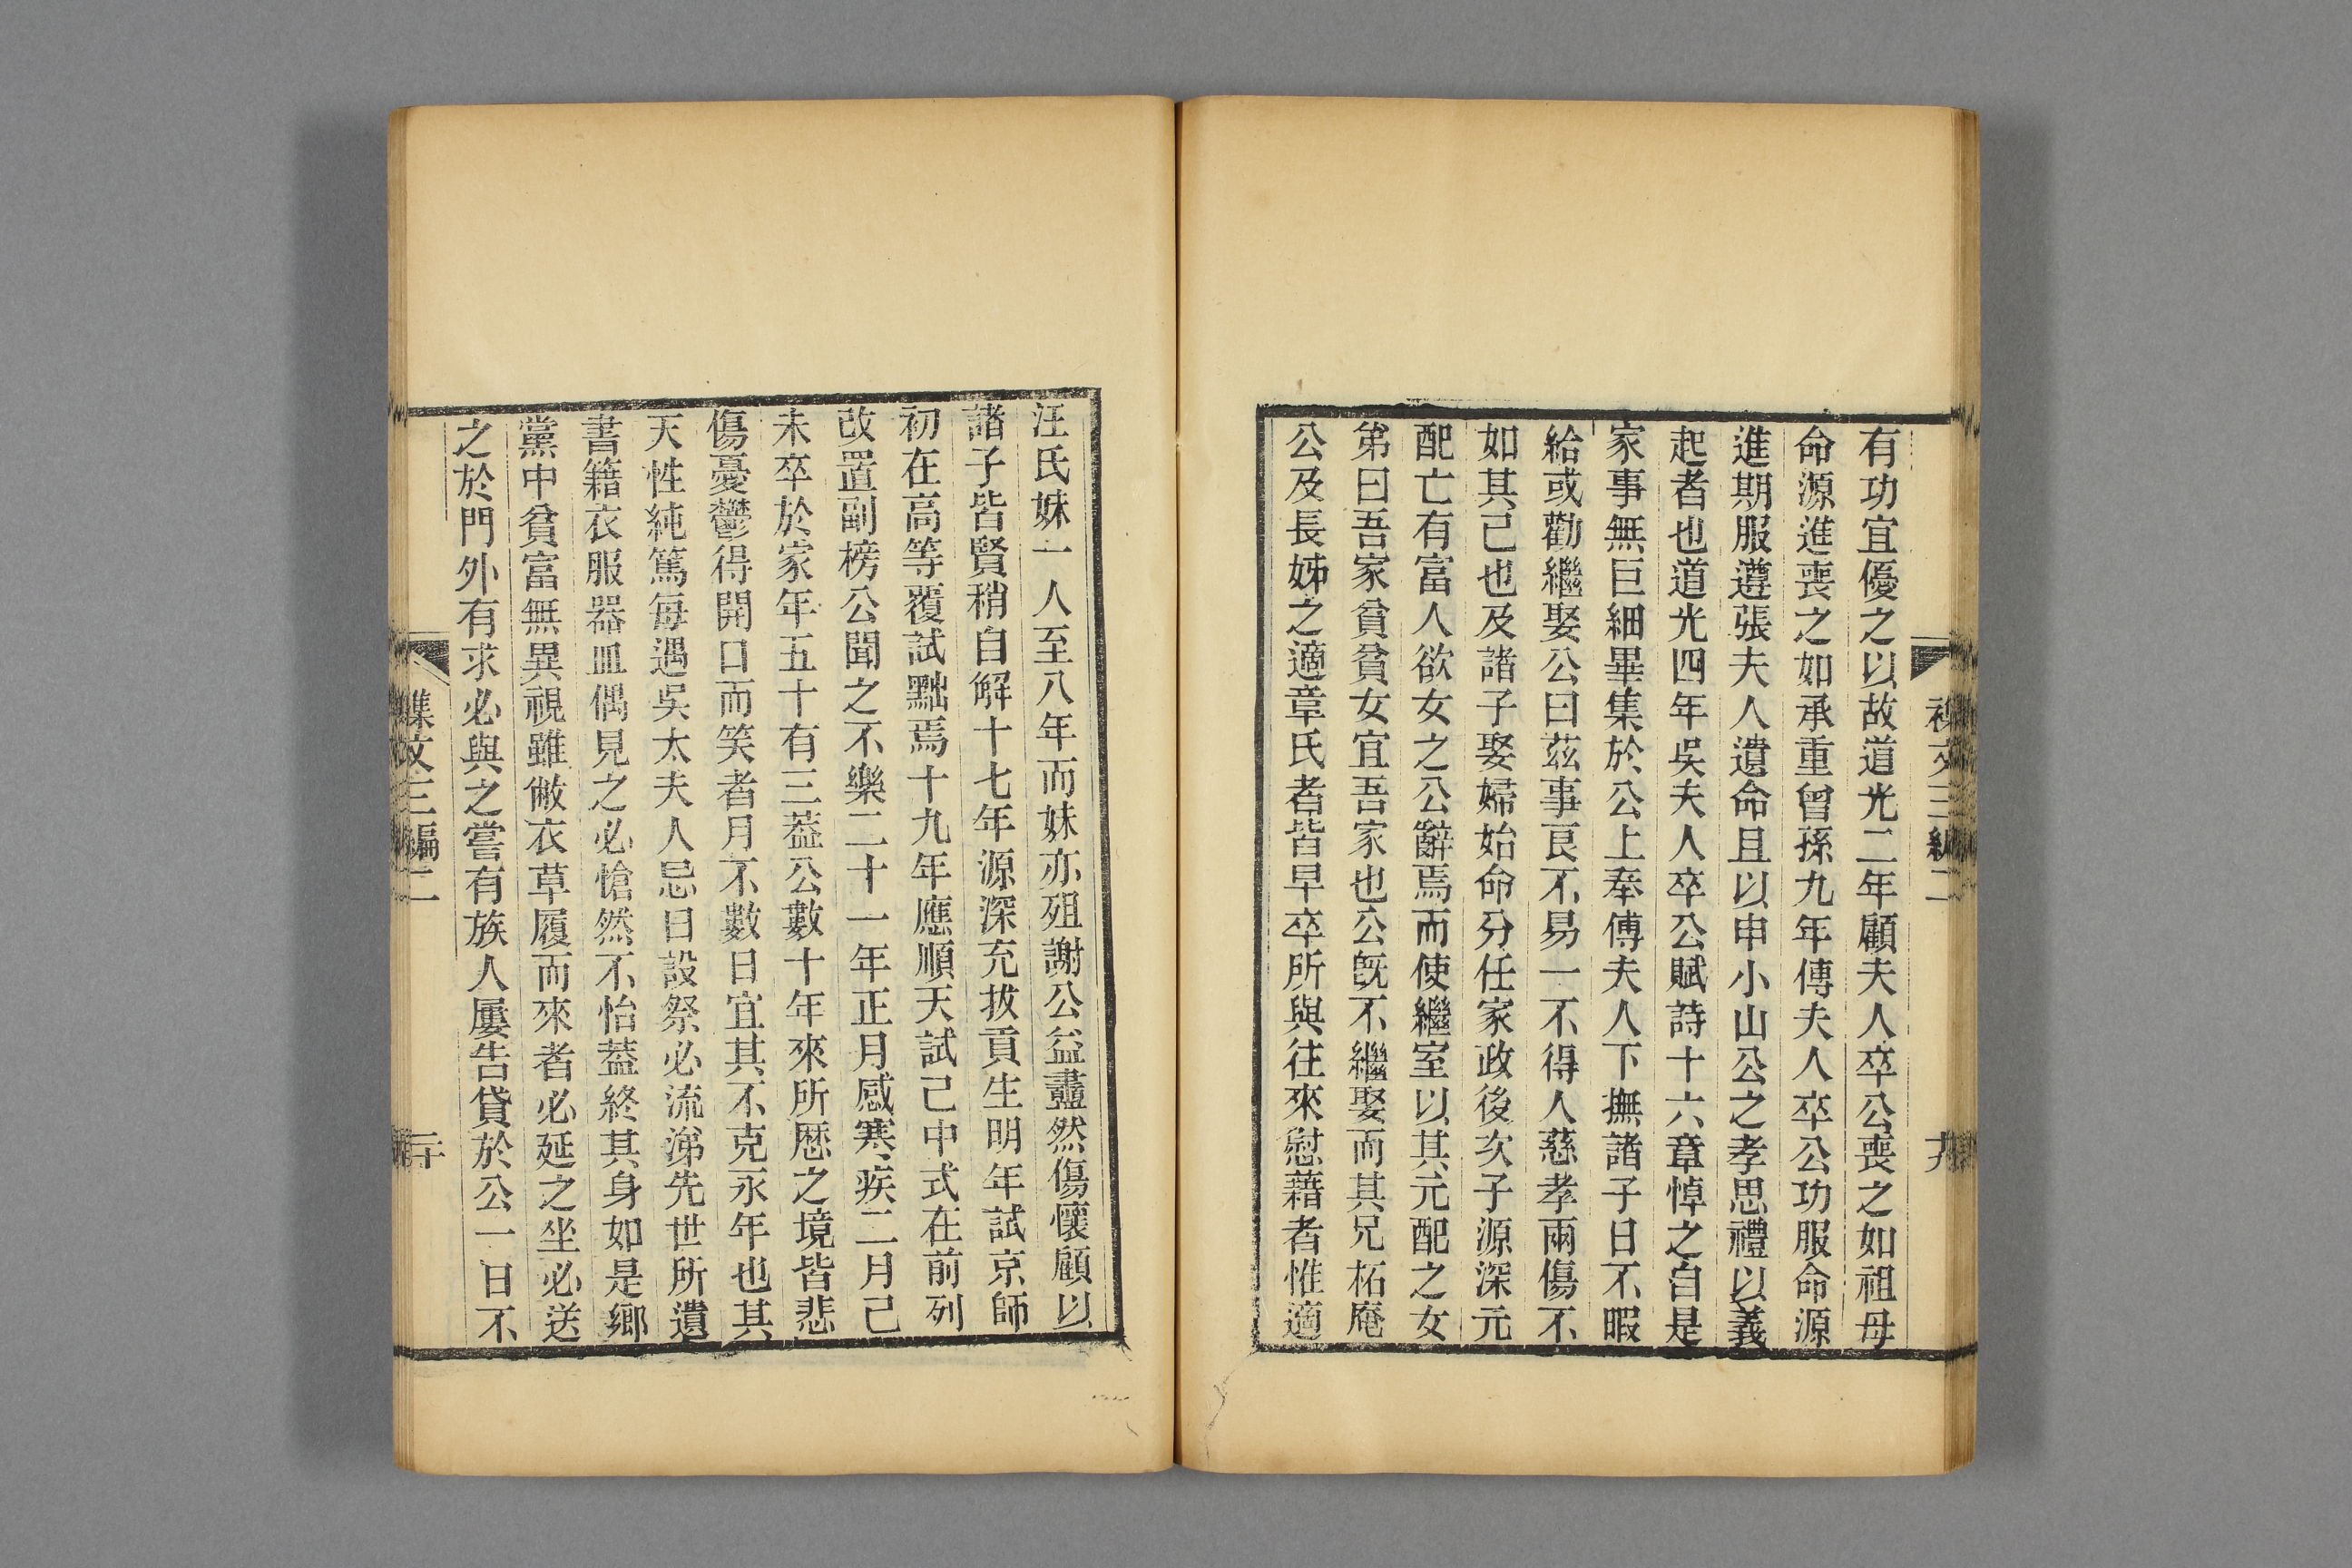 有功宜優之以故道光二年顧夫人卒公喪之如祖母
命源進喪之如承重曾孫九年傅夫人卒公功服命源
進期服遵張夫人遺命且以申小山公之孝思禮以義
起者也道光四年吳夫人卒公賦詩十六章悼之自是
家事無巨細畢集於公上奉傅夫人下撫諸子日不暇
給或勸繼娶公曰茲事良不易一不得人慈孝兩傷不
如其已也及諸子娶婦始命分任家政後次子源深元
配亡有富人欲女之公辭焉而使繼室以其元配之女
弟曰吾家貧貧女宜吾家也公旣不繼娶而其兄柘庵
公及長姊之適章氏者皆早卒所與往來慰藉者惟適
文三編二
十九
汪氏妹一人至八年而妹亦殂謝公益衋然傷懷顧以
諸子皆賢稍自解十七年源深充拔貢生明年試京師
初在高等覆試黜焉十九年應順天試已中式在前列
改置副榜公聞之不樂二十一年正月感寒疾二月己
未卒於家年五十有三葢公數十年來所歷之境皆悲
傷憂鬱得開口而笑者月不數日宜其不克永年也其
天性純篤每遇吳太夫人忌日設祭必流涕先世所遺
書籍衣服器皿偶見之必愴然不怡葢終其身如是鄉
黨中貧富無異視雖敝衣草履而來者必延之坐必送
之於門外有求必與之嘗有族人屢告貸於公一日不
文三編二
二十